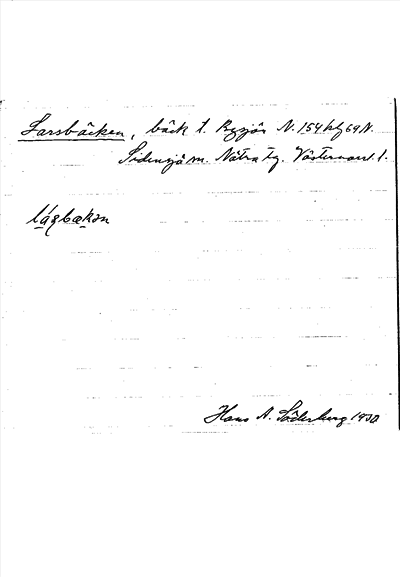 Larsbäcken, bäck t. Bysjön N. 154 kf 69 N.
Sidensjö sn. Nätra tg. Västernorrl. l.
lágbækən
Hans A. Söderberg 1930